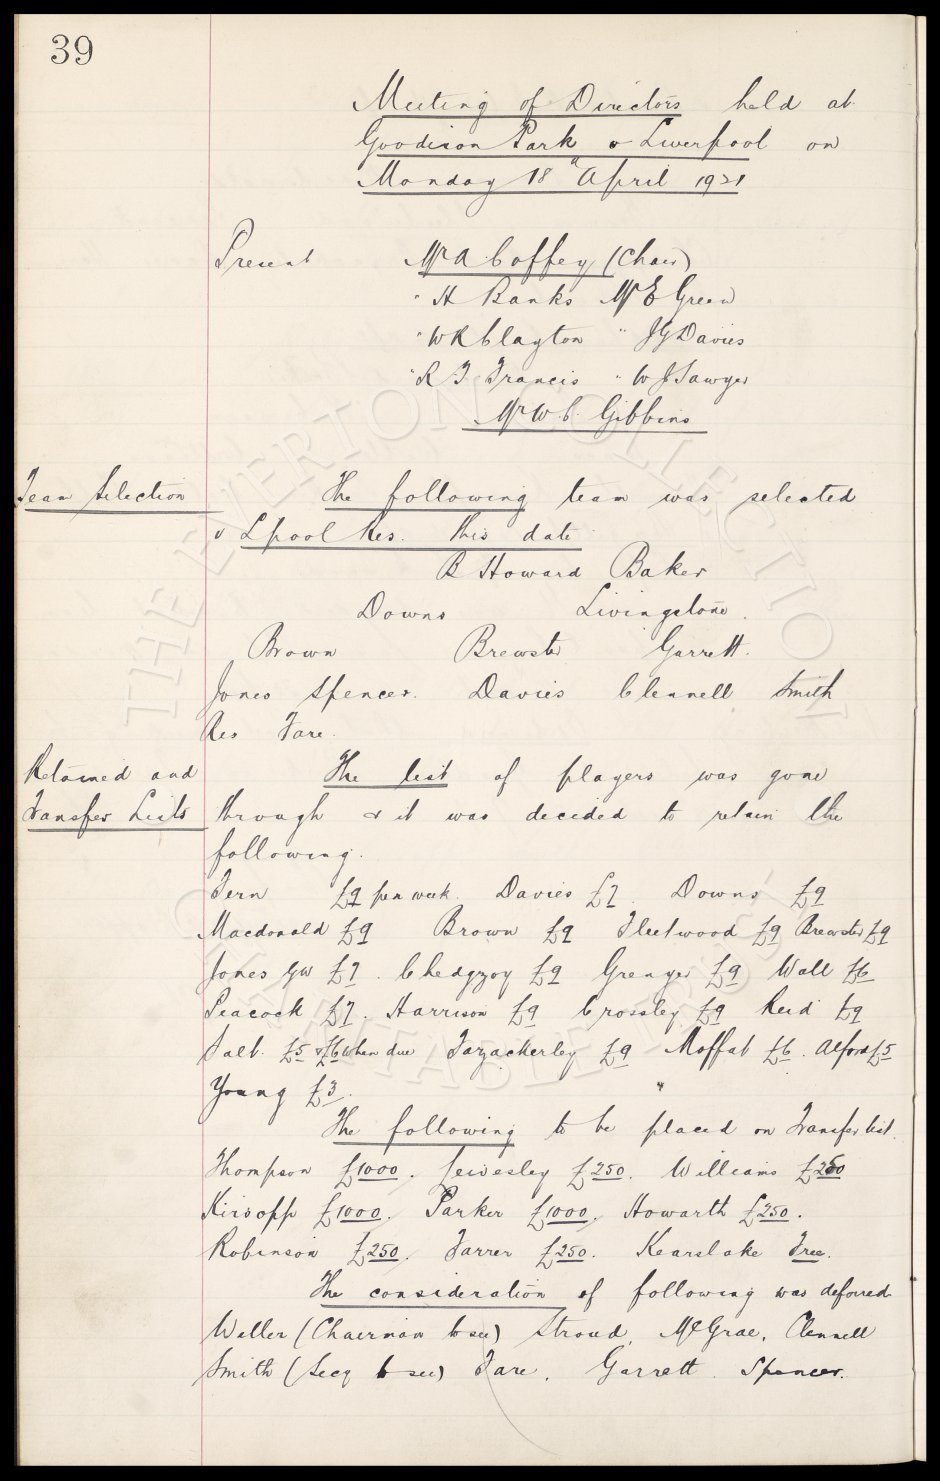 39
Meeting of Directors held at
Goodison Park v Liverpool on
Monday 18th April 1921
Present Mr A Coffey (Chair)
" H Banks Mr E Green
" W R Clayton " J G Davies
" R T Francis " W J Sawyer
Mr W. C. Gibbins
Team Selection The following team was selected
v Lpool Res. this date
B Howard Baker
Downs Livingstone.
Brown Brewster Garrett.
Jones Spencer. Davies Clennell Smith
Res Fare.
Retained and The list of players was gone
Transfer Lists through & it was decided to retain the
following.
Fern £9 per week. Davies £7. Downs £9
Macdonald £9 Brown £9 Fleetwood £9 Brewster £9
Jones GW £7. Chedgzoy £9 Grenyer £9 Wall £6
Peacock £7. Harrison £9 Crossley £9 Reid £9
Salt. £5 & £6 when due Fazackerley £9 Moffat £6. Alford £5
Young £3.
The following to be placed on Transfer list.
Thompson £1000. Lewesley £250. Williams £250
Kirsopp £1000. Parker £1000. Howarth £250.
Robinson £250. Farrer £250. Kearslake Free.
The consideration of following was deferred
Weller (Chairman to see) Stroud, McGrae, Clennell
Smith (Secy to see) Fare. Garrett. Spencer.
THE EVERTON COLLECTION
CHARITABLE TRUST